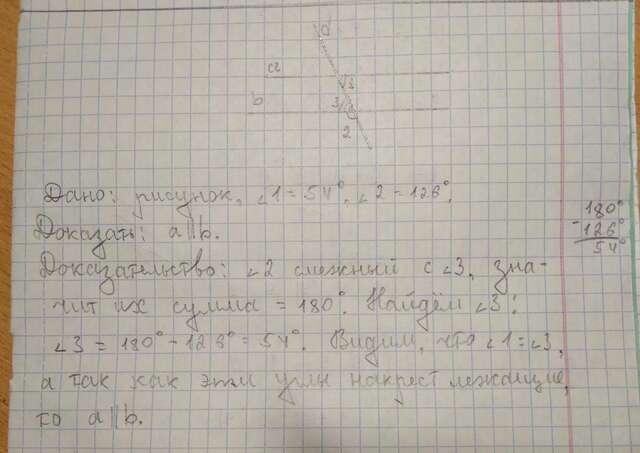 a
1
b
3
2
Дано: рисунок, ∠1 = 54°, ∠2 = 126°.
Доказать: a || b.
180°
- 126°
54°
Доказательство: ∠2 смежный с ∠3, зна-
чит их сумма = 180°. Найдём ∠3:
∠3 = 180° - 126° = 54°. Видим, что ∠1 = ∠3,
а так как эти углы накрест лежащие,
то a || b.